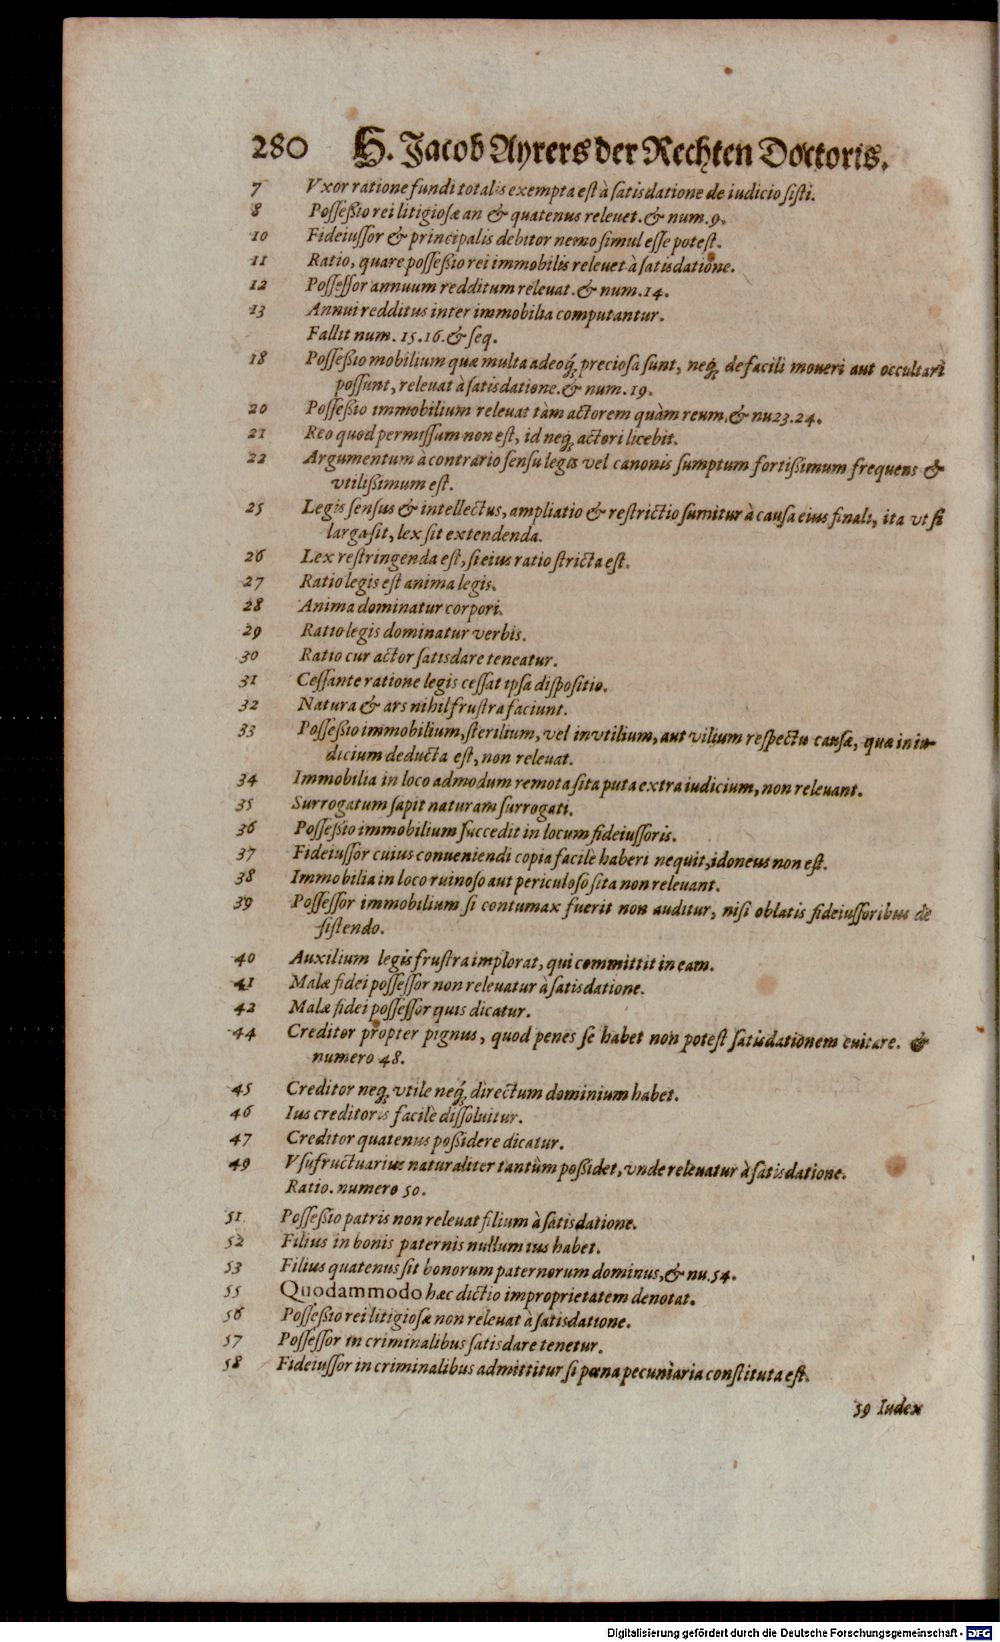 280 H. Jacob Ayrers der Rechten Doctoris.
7 Vxor ratione fundi totalis exempta est à satisdatione de iudicio sisti.
8 Posseßio rei litigiosæ an & quatenus releuet. & num. 9.
10 Fideiussor & principalis debitor nemo simul esse potest.
11 Ratio, quare posseßio rei immobilis releuet à satisdatione.
12 Possessor annuum redditum releuat. & num. 14.
13 Annui redditus inter immobilia computantur.
Fallit num. 15. 16. & seq.
18 Posseßio mobilium quæ multa adeoq́; preciosa sunt, neq́; de facili moueri aut occultari
possunt, releuat à satisdatione. & num. 19.
20 Posseßio immobilium releuat tàm actorem quàm reum, & nu 23. 24.
21 Reo quod permissum non est, id neq́; actori licebit.
22 Argumentum à contrario sensu legis vel canonis sumptum fortißimum frequens &
vtilißimum est.
25 Legis sensus & intellectus, ampliatio & restrictio sumitur à causa eius finali, ita vt si
larga sit, lex sit extendenda.
26 Lex restringenda est, si eius ratio stricta est.
27 Ratio legis est anima legis.
28 Anima dominatur corpori.
29 Ratio legis dominatur verbis.
30 Ratio cur actor satisdare teneatur.
31 Cessante ratione legis cessat ipsa dispositio.
32 Natura & ars nihil frustra faciunt.
33 Posseßio immobilium, sterilium, vel invtilium, aut vilium respectu causæ, quæ in iu-
dicium deducta est, non releuat.
34 Immobilia in loco admodum remota sita puta extra iudicium, non releuant.
35 Surrogatum sapit naturam surrogati.
36 Posseßio immobilium succedit in locum fideiussoris.
37 Fideiussor cuius conueniendi copia facilè haberi nequit, idoneus non est.
38 Immobilia in loco ruinoso aut periculoso sita non releuant.
39 Possessor immobilium si contumax fuerit non auditur, nisi oblatis fideiussoribus de
sistendo.
40 Auxilium legis frustra implorat, qui committit in eam.
41 Malæ fidei possessor non releuatur à satisdatione.
42 Malæ fidei possessor quis dicatur.
44 Creditor propter pignus, quod penes se habet non potest satisdationem euitare. &
numero 48.
45 Creditor neq́; vtile neq́; directum dominium habet.
46 Ius creditoris facilè dissoluitur.
47 Creditor quatenus poßidere dicatur.
49 Vsufructuarius naturaliter tantùm poßidet, vnde releuatur à satisdatione.
Ratio. numero 50.
51 Posseßio patris non releuat filium à satisdatione.
52 Filius in bonis paternis nullum ius habet.
53 Filius quatenus sit bonorum paternorum dominus, & nu. 54.
55 Quodammodo hæc dictio improprietatem denotat.
56 Posseßio rei litigiosæ non releuat à satisdatione.
57 Possessor in criminalibus satisdare tenetur.
58 Fideiussor in criminalibus admittitur si pœna pecuniaria constituta est.
59 Iudex
Digitalisierung gefördert durch die Deutsche Forschungsgemeinschaft - DFG